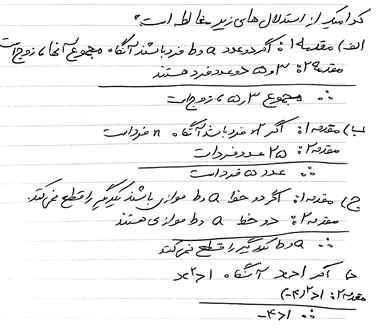 کدامیک از استدلال های زیر مغالطه است؟
الف) مقدمه 1: اگر دو عدد a و b فرد باشند آنگاه مجموع آنها، زوج است
مقدمه 2: 3 و 5 دو عدد فرد هستند
∴ مجموع 3 و 5، زوج است
ب) مقدمه 1: اگر n² فرد باشد آنگاه n فرد است
مقدمه 2: 25 عدد فرد است
∴ عدد 5 فرد است
ج) مقدمه 1: اگر دو خط a و b موازی باشند یکدیگر را قطع نمی‌کنند.
مقدمه 2: دو خط a و b موازی هستند
∴ a و b یکدیگر را قطع نمی‌کنند
د) اگر x>1 آنگاه x²>1
مقدمه 2: (-4)²>1
∴ -4>1